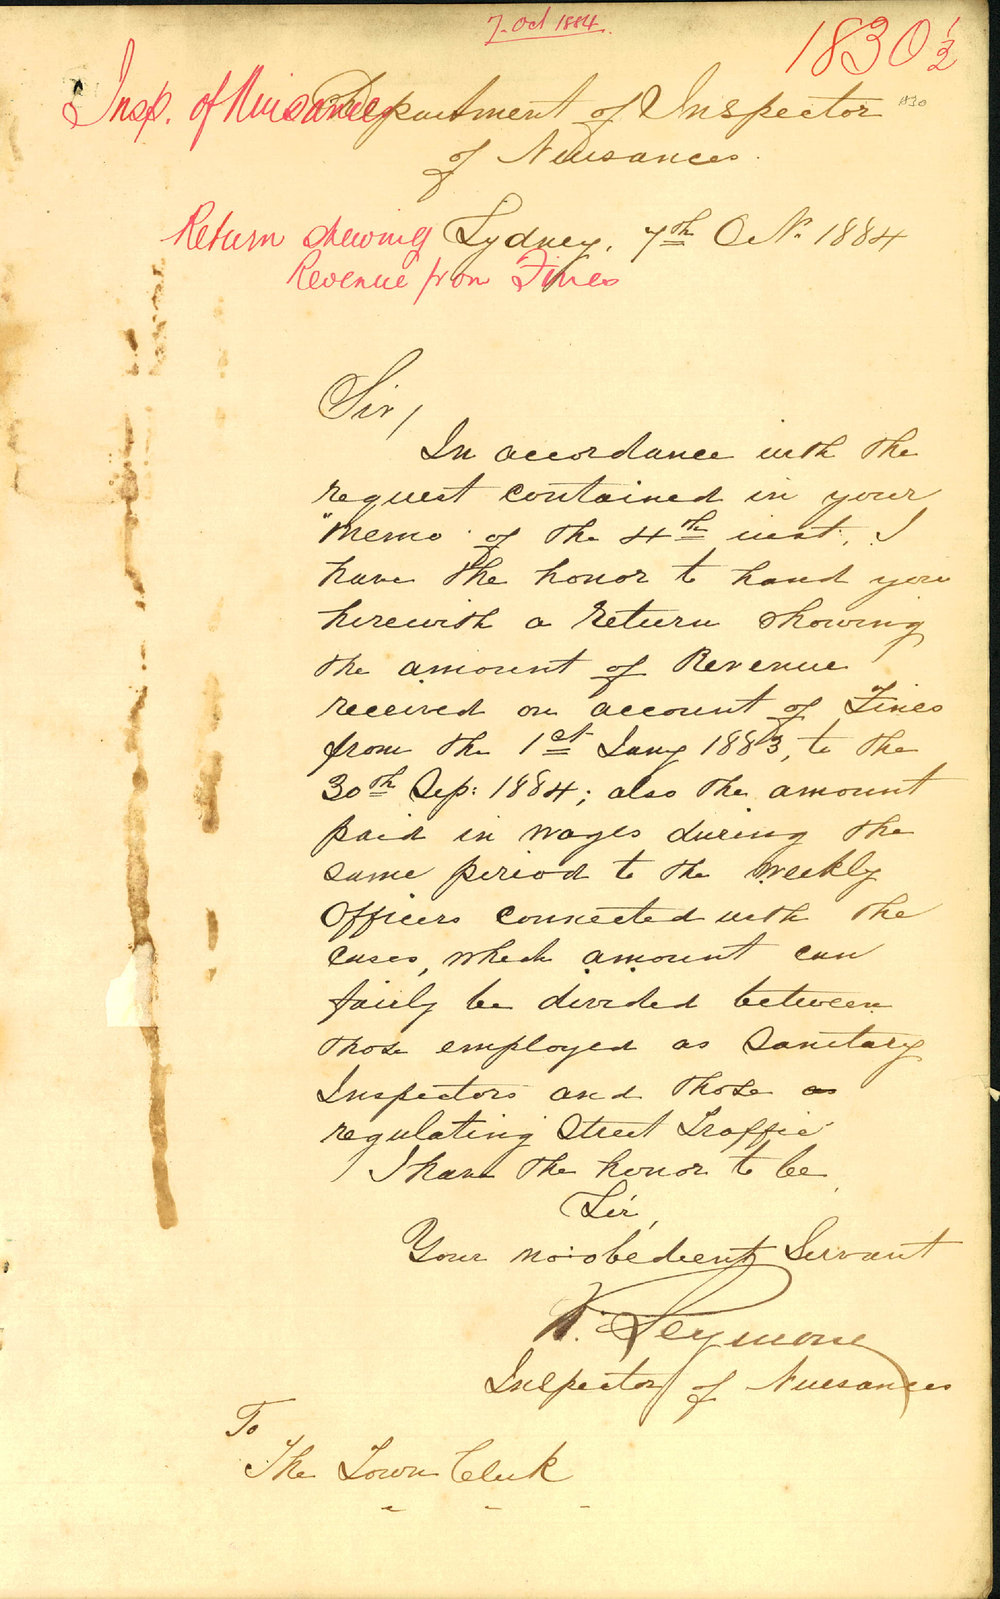 7. Oct 1884.
1830 1/2
Insp. of Nuisances
Department of Inspector
1830
of Nuisances.
Return shewing
Sydney, 7th Oct. 1884
Revenue from Fines
Sir/
In accordance with the
request contained in your
"Memo" of the 4th inst. I
have the honor to hand you
herewith a Return showing
the amount of Revenue
received on account of Fines
from the 1st Jany 1883, to the
30th Sep: 1884; also the amount
paid in wages during the
same period to the weekly
Officers connected with the
cases, which amount can
fairly be divided between
those employed as Sanitary
Inspectors and those as
regulating Street Traffic
I have the honor to be
Sir,
Your mo: obedient Servant
Seymour
Inspector of Nuisances
To
The Town Clerk